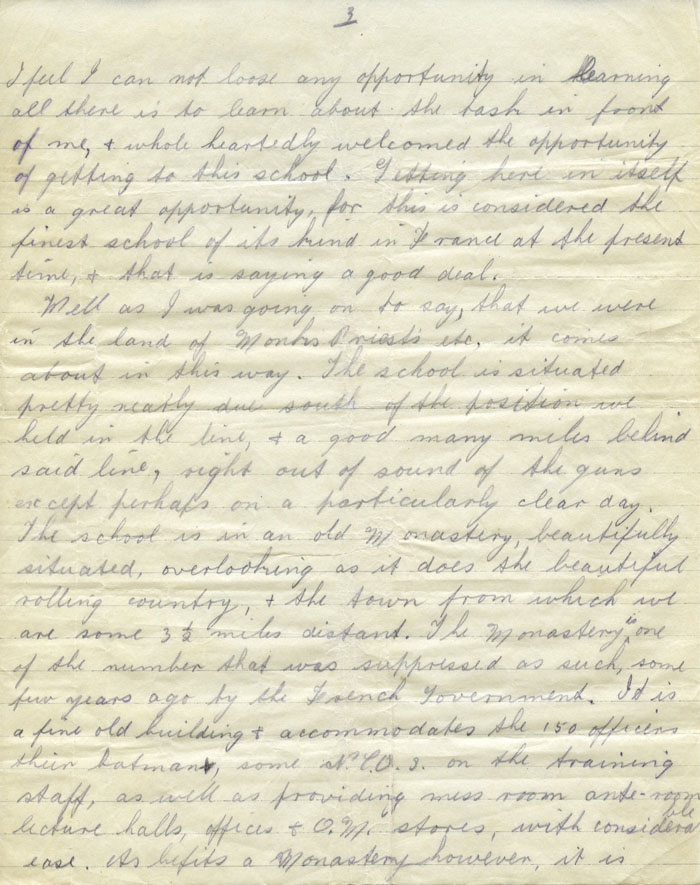 3
I feel I can not loose any opportunity in learning
all there is to learn about the task in front
of me, & whole heartedly welcomed the opportunity
of getting to this school. Getting here in itself
is a great opportunity, for this is considered the
finest school of its kind in France at the present
time, & that is saying a good deal.
Well as I was going on to say, that we were
in the land of Monks Priests etc, it comes
about in this way. The school is situated
pretty neatly due south of the position we
held in the line, & a good many miles behind
said line, right out of sound of the guns
except perhaps on a particularly clear day.
The school is in an old Monastery, beautifully
situated, overlooking as it does the beautiful
rolling country, & the town from which we
are some 3 1/2 miles distant. The Monastery is one
of the number that was suppressed as such, some
few years ago by the French Government. It is
a fine old building & accommodates the 150 officers
their batman, some N.C.O.s. on the training
staff, as well as providing mess room ante-room
lecture halls, offices & Q.M. stores, with considerable
ease. As befits a Monastery however, it is